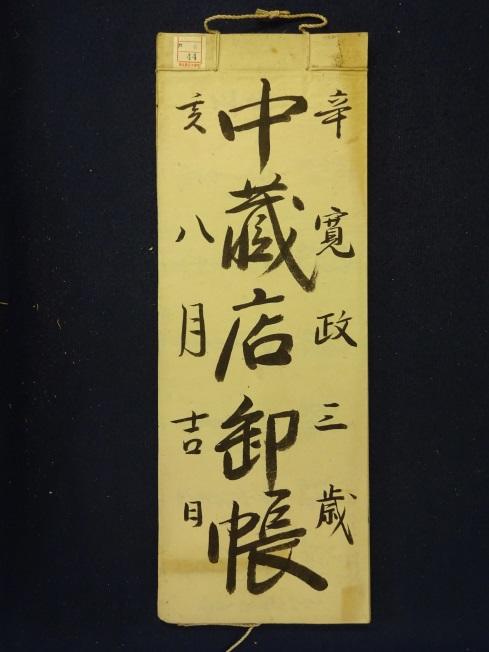 辛寛政三歳
中藏店卸帳
亥八月吉日
44